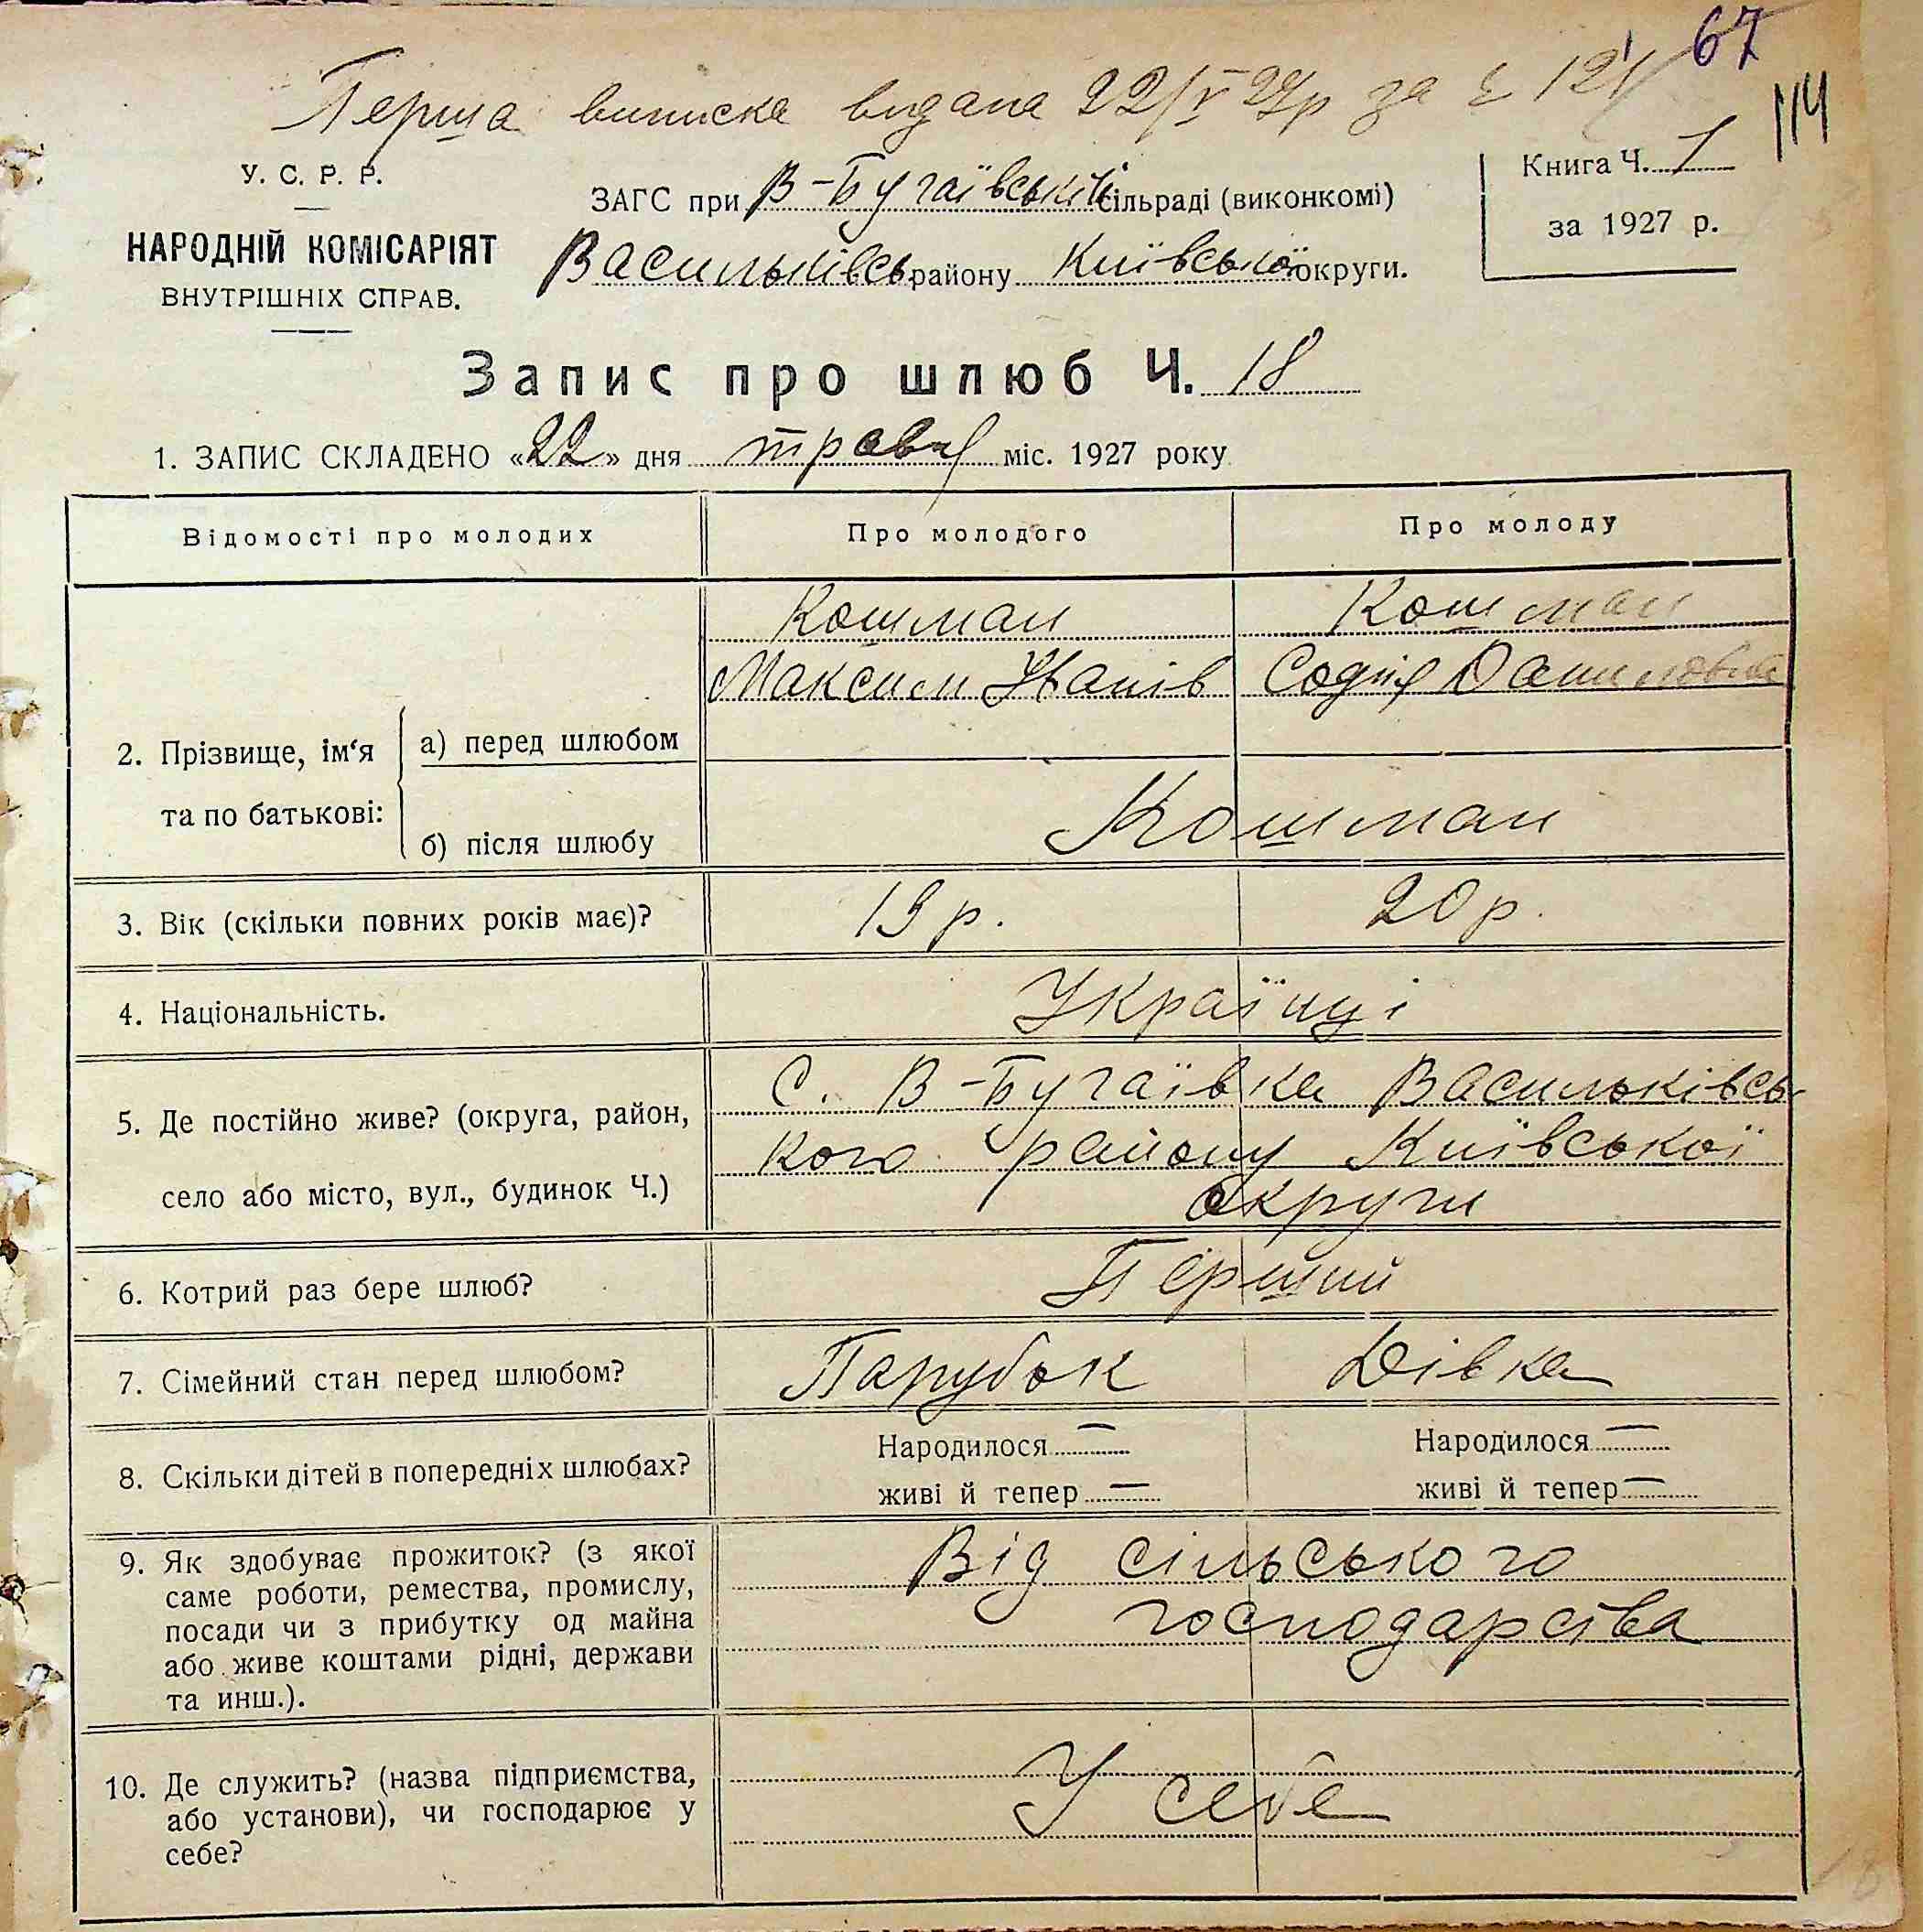 67
114
Перша виписка видана 22/V 27р за Ч 121
У. С. Р. Р.
НАРОДНІЙ КОМІСАРІЯТ
ВНУТРІШНІХ СПРАВ.
ЗАГС при В-Бугаївській сільраді (виконкомі)
Васильківсь району Київської округи.
Книга Ч. 1
за 1927 р.
Запис про шлюб Ч. 18
1. ЗАПИС СКЛАДЕНО «22» дня травня міс. 1927 року
Відомості про молодих
Про молодого
Про молоду
2. Прізвище, ім'я
та по батькові:
а) перед шлюбом
Кошман
Максим Іванів
Кошман
Софія Данилова
б) після шлюбу
Кошман
3. Вік (скільки повних років має)?
19 р.
20 р.
4. Національність.
Українці
5. Де постійно живе? (округа, район,
село або місто, вул., будинок Ч.)
С. В-Бугаївка Васильківсь-
кого району Київської
округи
6. Котрий раз бере шлюб?
Перший
7. Сімейний стан перед шлюбом?
Парубок
Дівка
8. Скільки дітей в попередніх шлюбах?
Народилося —
живі й тепер —
Народилося —
живі й тепер —
9. Як здобуває прожиток? (з якої
саме роботи, ремества, промислу,
посади чи з прибутку од майна
або живе коштами рідні, держави
та инш.).
Від сільського
господарства
10. Де служить? (назва підприємства,
або установи), чи господарює у
себе?
У себе